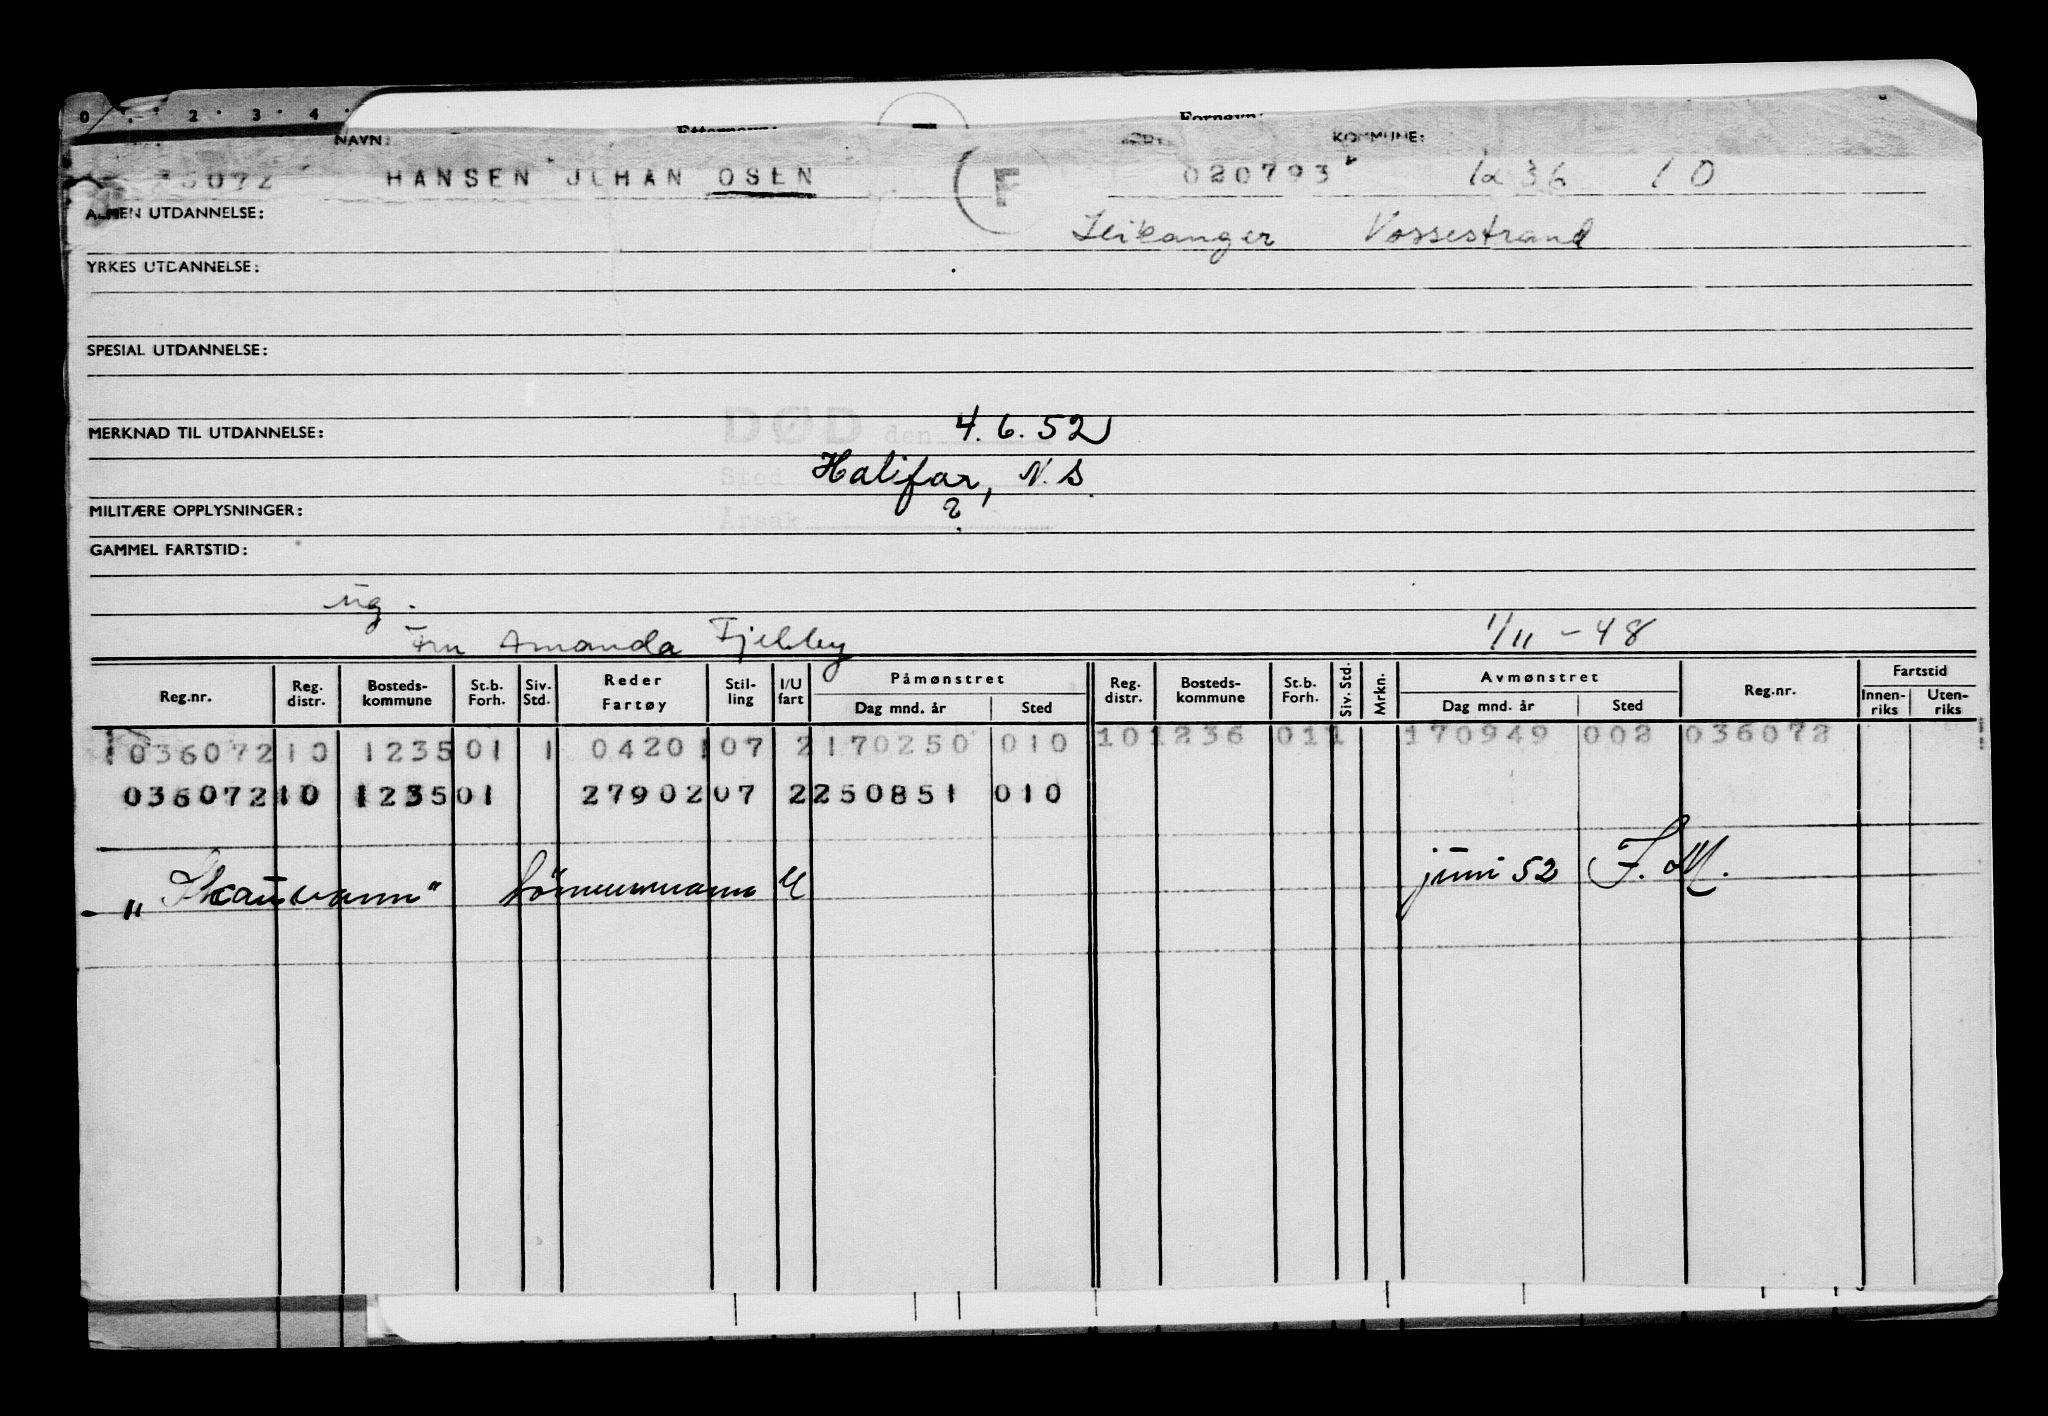 0 2 3 4
NAVN: KOMMUNE:
HANSEN JOHAN OSEN F 020793 1236 10
ALMEN UTDANNELSE:
Leikanger Vossestrand
YRKES UTDANNELSE:
SPESIAL UTDANNELSE:
MERKNAD TIL UTDANNELSE: DØD den 4.6.52
Sted Halifax, N.S.
MILITÆRE OPPLYSNINGER: Årsak ?
GAMMEL FARTSTID:
ug.
Fru Amanda Fjelby 1/11-48
Reg.nr. Reg. distr. Bosteds-kommune St.b. Forh. Siv. Std. Reder Fartøy Stil-ling I/U fart Påmønstret Dag mnd. år Sted Reg. distr. Bosteds-kommune St.b. Forh. Siv. Std. Mrkn. Avmønstret Dag mnd. år Sted Reg.nr. Fartstid Innen-riks Uten-riks
036072 10 1235 01 1 0420 107 2 170250 010 10 1236 01 1 170949 002 036072
036072 10 1235 01 27902 07 2 250851 010
"Skauvann" tömmermann U juni 52 F.M.